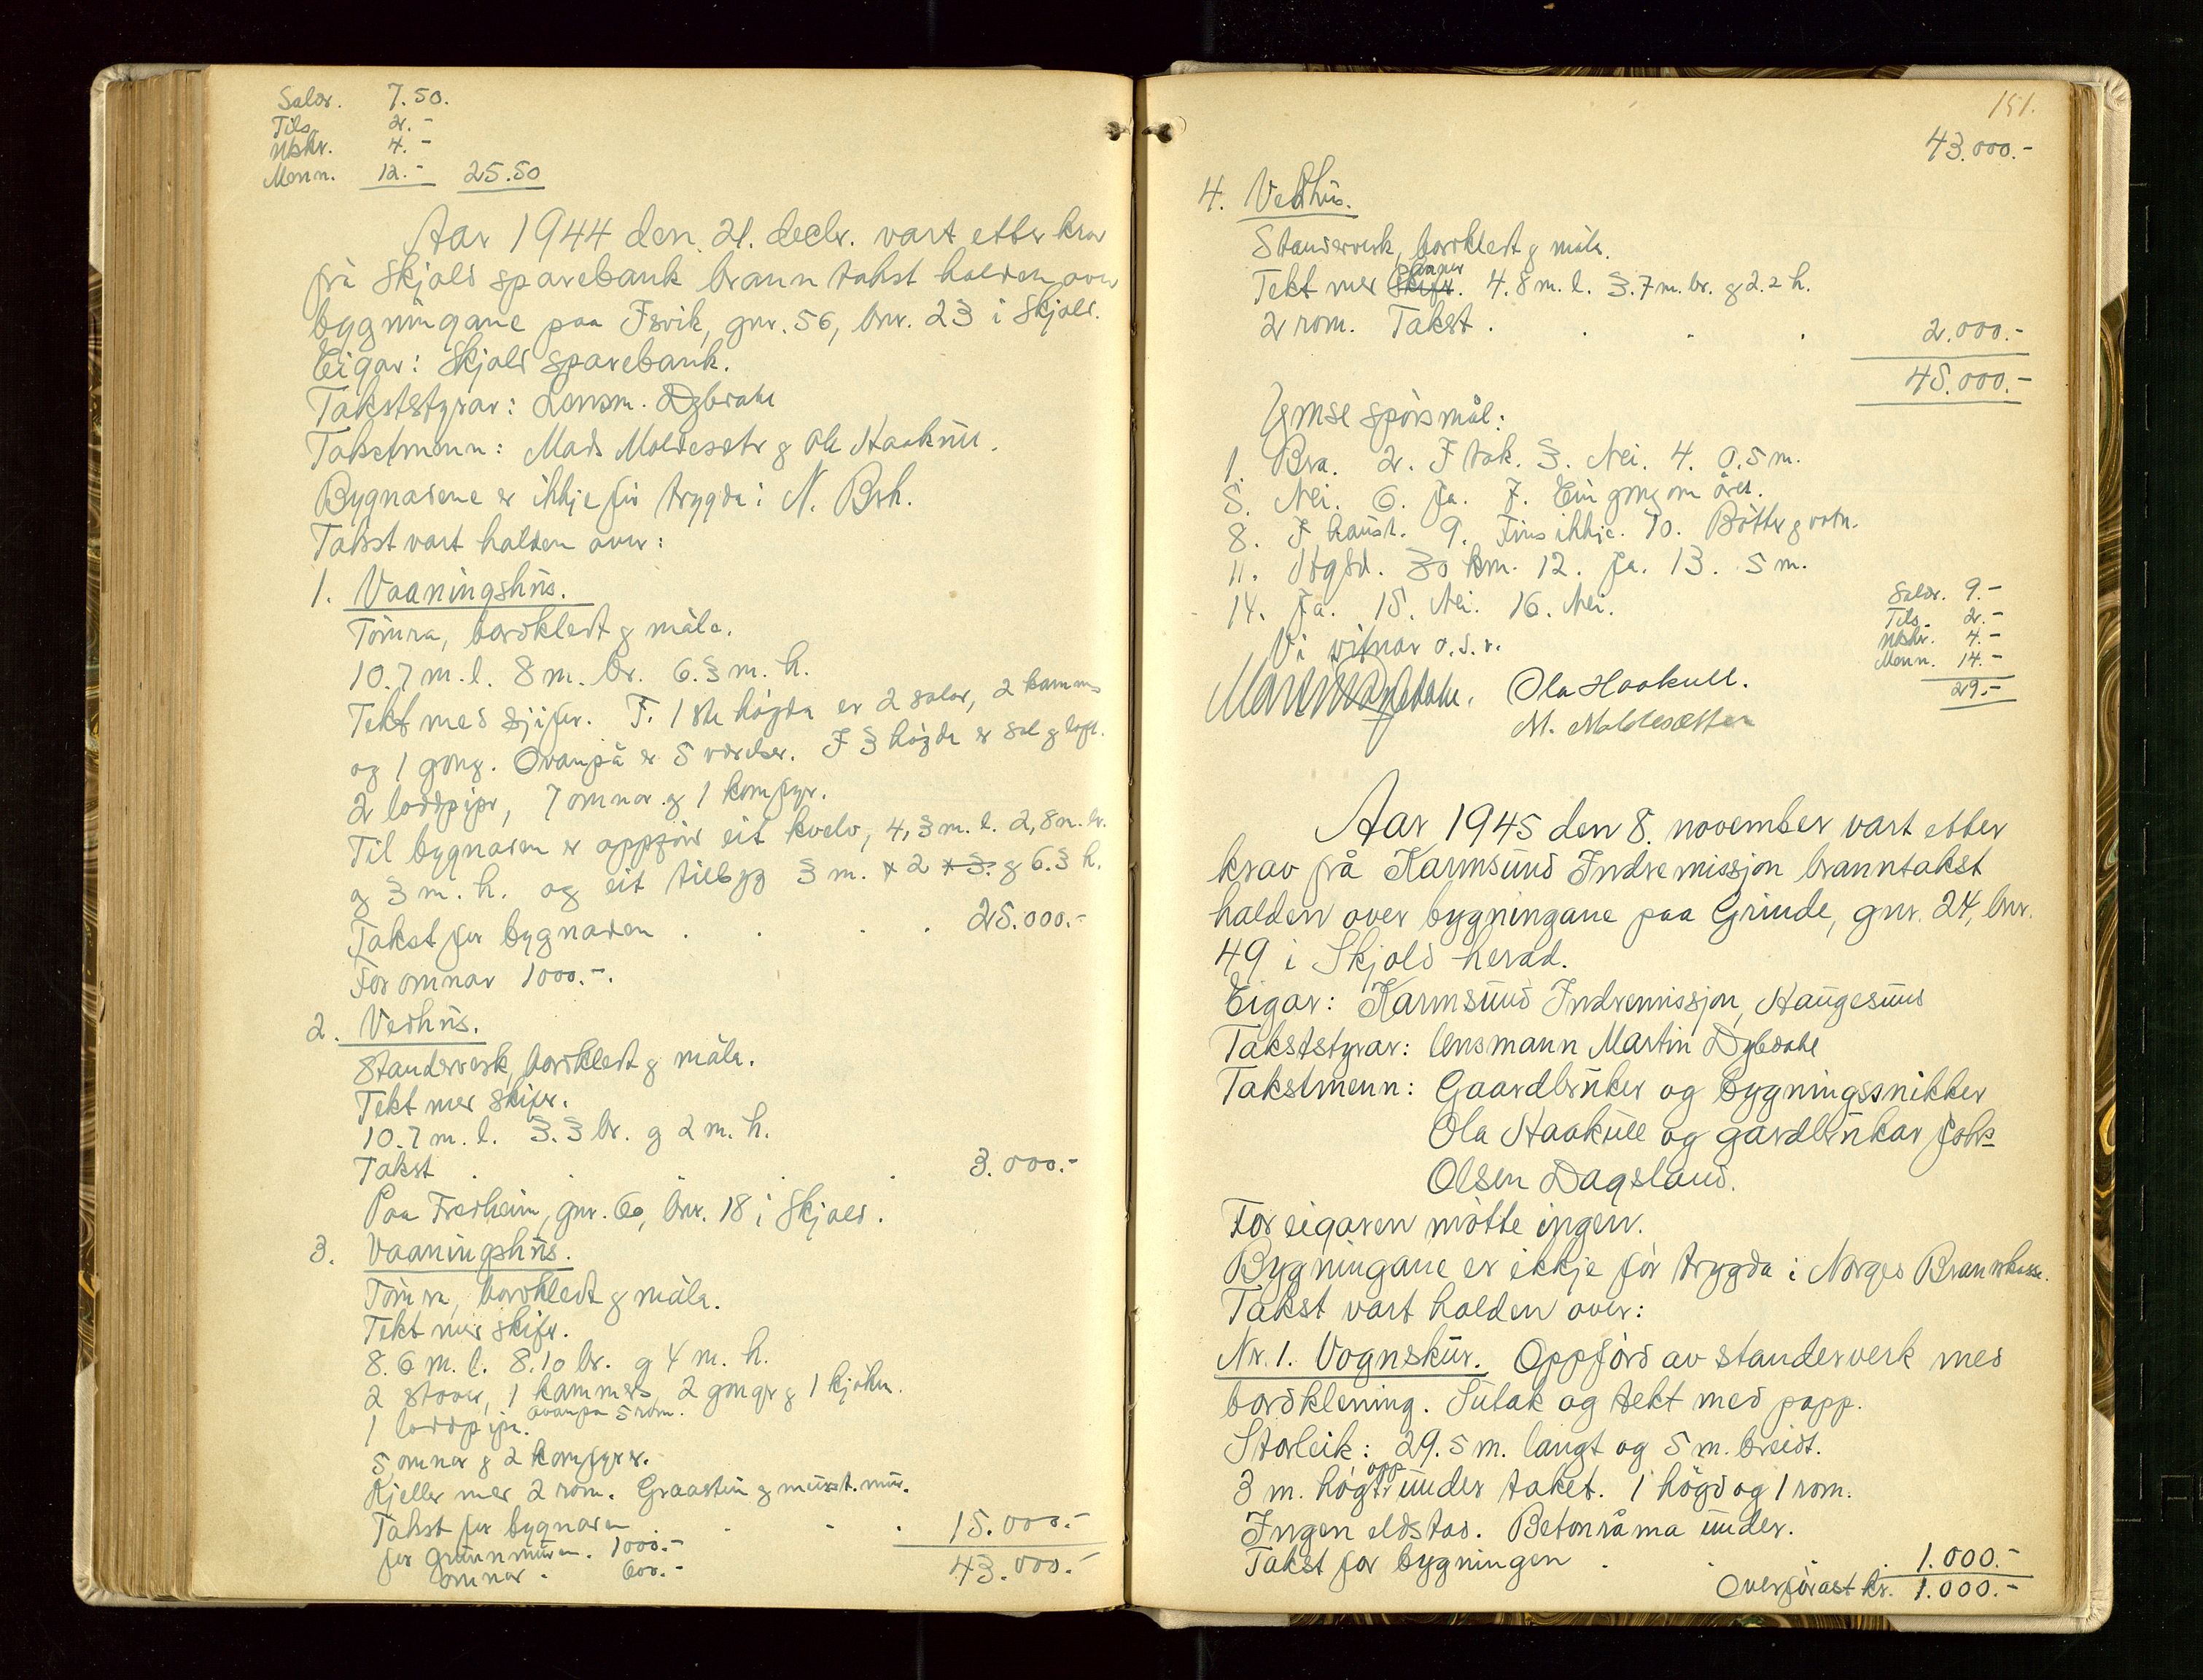 Salær. 7.50.
Tils. 2.-
Utskr. 4.-
Menn. 12.- 25.50
Aar 1944 den 21. decbr. vart etter krav
frå Skjold sparebank branntakst halden over
bygningane paa Isvik, gnr. 56, bnr. 23 i Skjold.
Eigar: Skjold sparebank.
Takststyrar: Lensm. Dybdahl
Takstmenn: Mads Moldesætr g Ola Haakull.
Bygnadene er ikkje før trygda i N. Brk.
Takst vart halden over:
1. Vaaningshus.
Tømra, bordkledt g måla.
10.7 m. l. 8 m. br. 6.3 m. h.
Tekt med skifer. I 1ste høgda er 2 salar, 2 kammers
og 1 gong. Ovanpå er 5 værelser. I 3 høgda er sal g loft.
2 loddpipr, 7 omnar g 1 komfyr.
Til bygnaden er oppførd eit kvelv, 4,3 m. l. 2,8 m. br.
g 3 m. h. og eit tilbygg 3 m. x 2 x 3. g 6.3 h.
Takst for bygnaden . . . . 25.000.-
For omnar 1000.-.
2. Vedhus.
Standerverk, bordkledt g måla.
Tekt med skifer.
10.7 m. l. 3.3 br. g 2 m. h.
Takst . . . . 3.000.-
Paa Fredheim, gnr. 60, bnr. 18 i Skjold.
3. Vaaningshus.
Tømra, bordkledt g måla.
Tekt med skifer.
8.6 m. l. 8.10 br. g 4 m. h.
2 stover, 1 kammers, 2 gonger g 1 kjøken.
1 loddpipe. ovanpa 5 rom.
5 omnar g 2 komfyrer.
Kjeller med 2 rom. Graastein g murst. mur.
Takst for bygnaden . . . . 15.000.-
for grunnmuren. 1000.-
omnar . 600.- 43.000.-
151.
43.000.-
4. Vedhus.
Standerverk, bordkledt g måla.
Tekt med Skifr. panner 4.8 m. l. 3.7 m. br. g 2.2 h.
2 rom. Takst . . . . 2.000.-
45.000.-
Ymse spørsmål:
1. Bra. 2. I tak. 3. Nei. 4. 0.5 m.
5. Nei. 6. Ja. 7. Ein gong om året.
8. I haust. 9. Fins ikkje. 10. Bøtter g vatn.
11. Hgsd. 30 km. 12. Ja. 13. 5 m.
14. Ja. 15. Nei. 16. Nei.
Vi vitnar o.s.v.
Salær. 9.-
Tils. 2.-
Utskr. 4.-
Menn. 14.-
29.-
Martin Dybdahl. Ola Haakull.
M. Moldesætter
Aar 1945 den 8. november vart etter
krav frå Karmsund Indremissjon branntakst
halden over bygningane paa Grinde, gnr. 24, bnr.
49 i Skjold herad.
Eigar: Karmsund Indremissjon, Haugesund
Takststyrar: lensmann Martin Dybdahl
Takstmenn: Gaardbruker og bygningssnikker
Ola Haakull og gardbrukar Johs
Olsen Dagsland.
For eigaren møtte ingen.
Bygningane er ikkje før trygda i Norges Brannkasse.
Takst vart halden over:
Nr. 1. Vognskur. Oppførd av standerverk med
bordklening. Sutak og tekt med papp.
Storleik: 29.5 m. langt og 5 m. breidt.
3 m. høgt opp under taket. 1 høgd og 1 rom.
Ingen eldstad. Betonråma under.
Takst for bygningen . . . 1.000.-
Overførast kr. 1.000.-